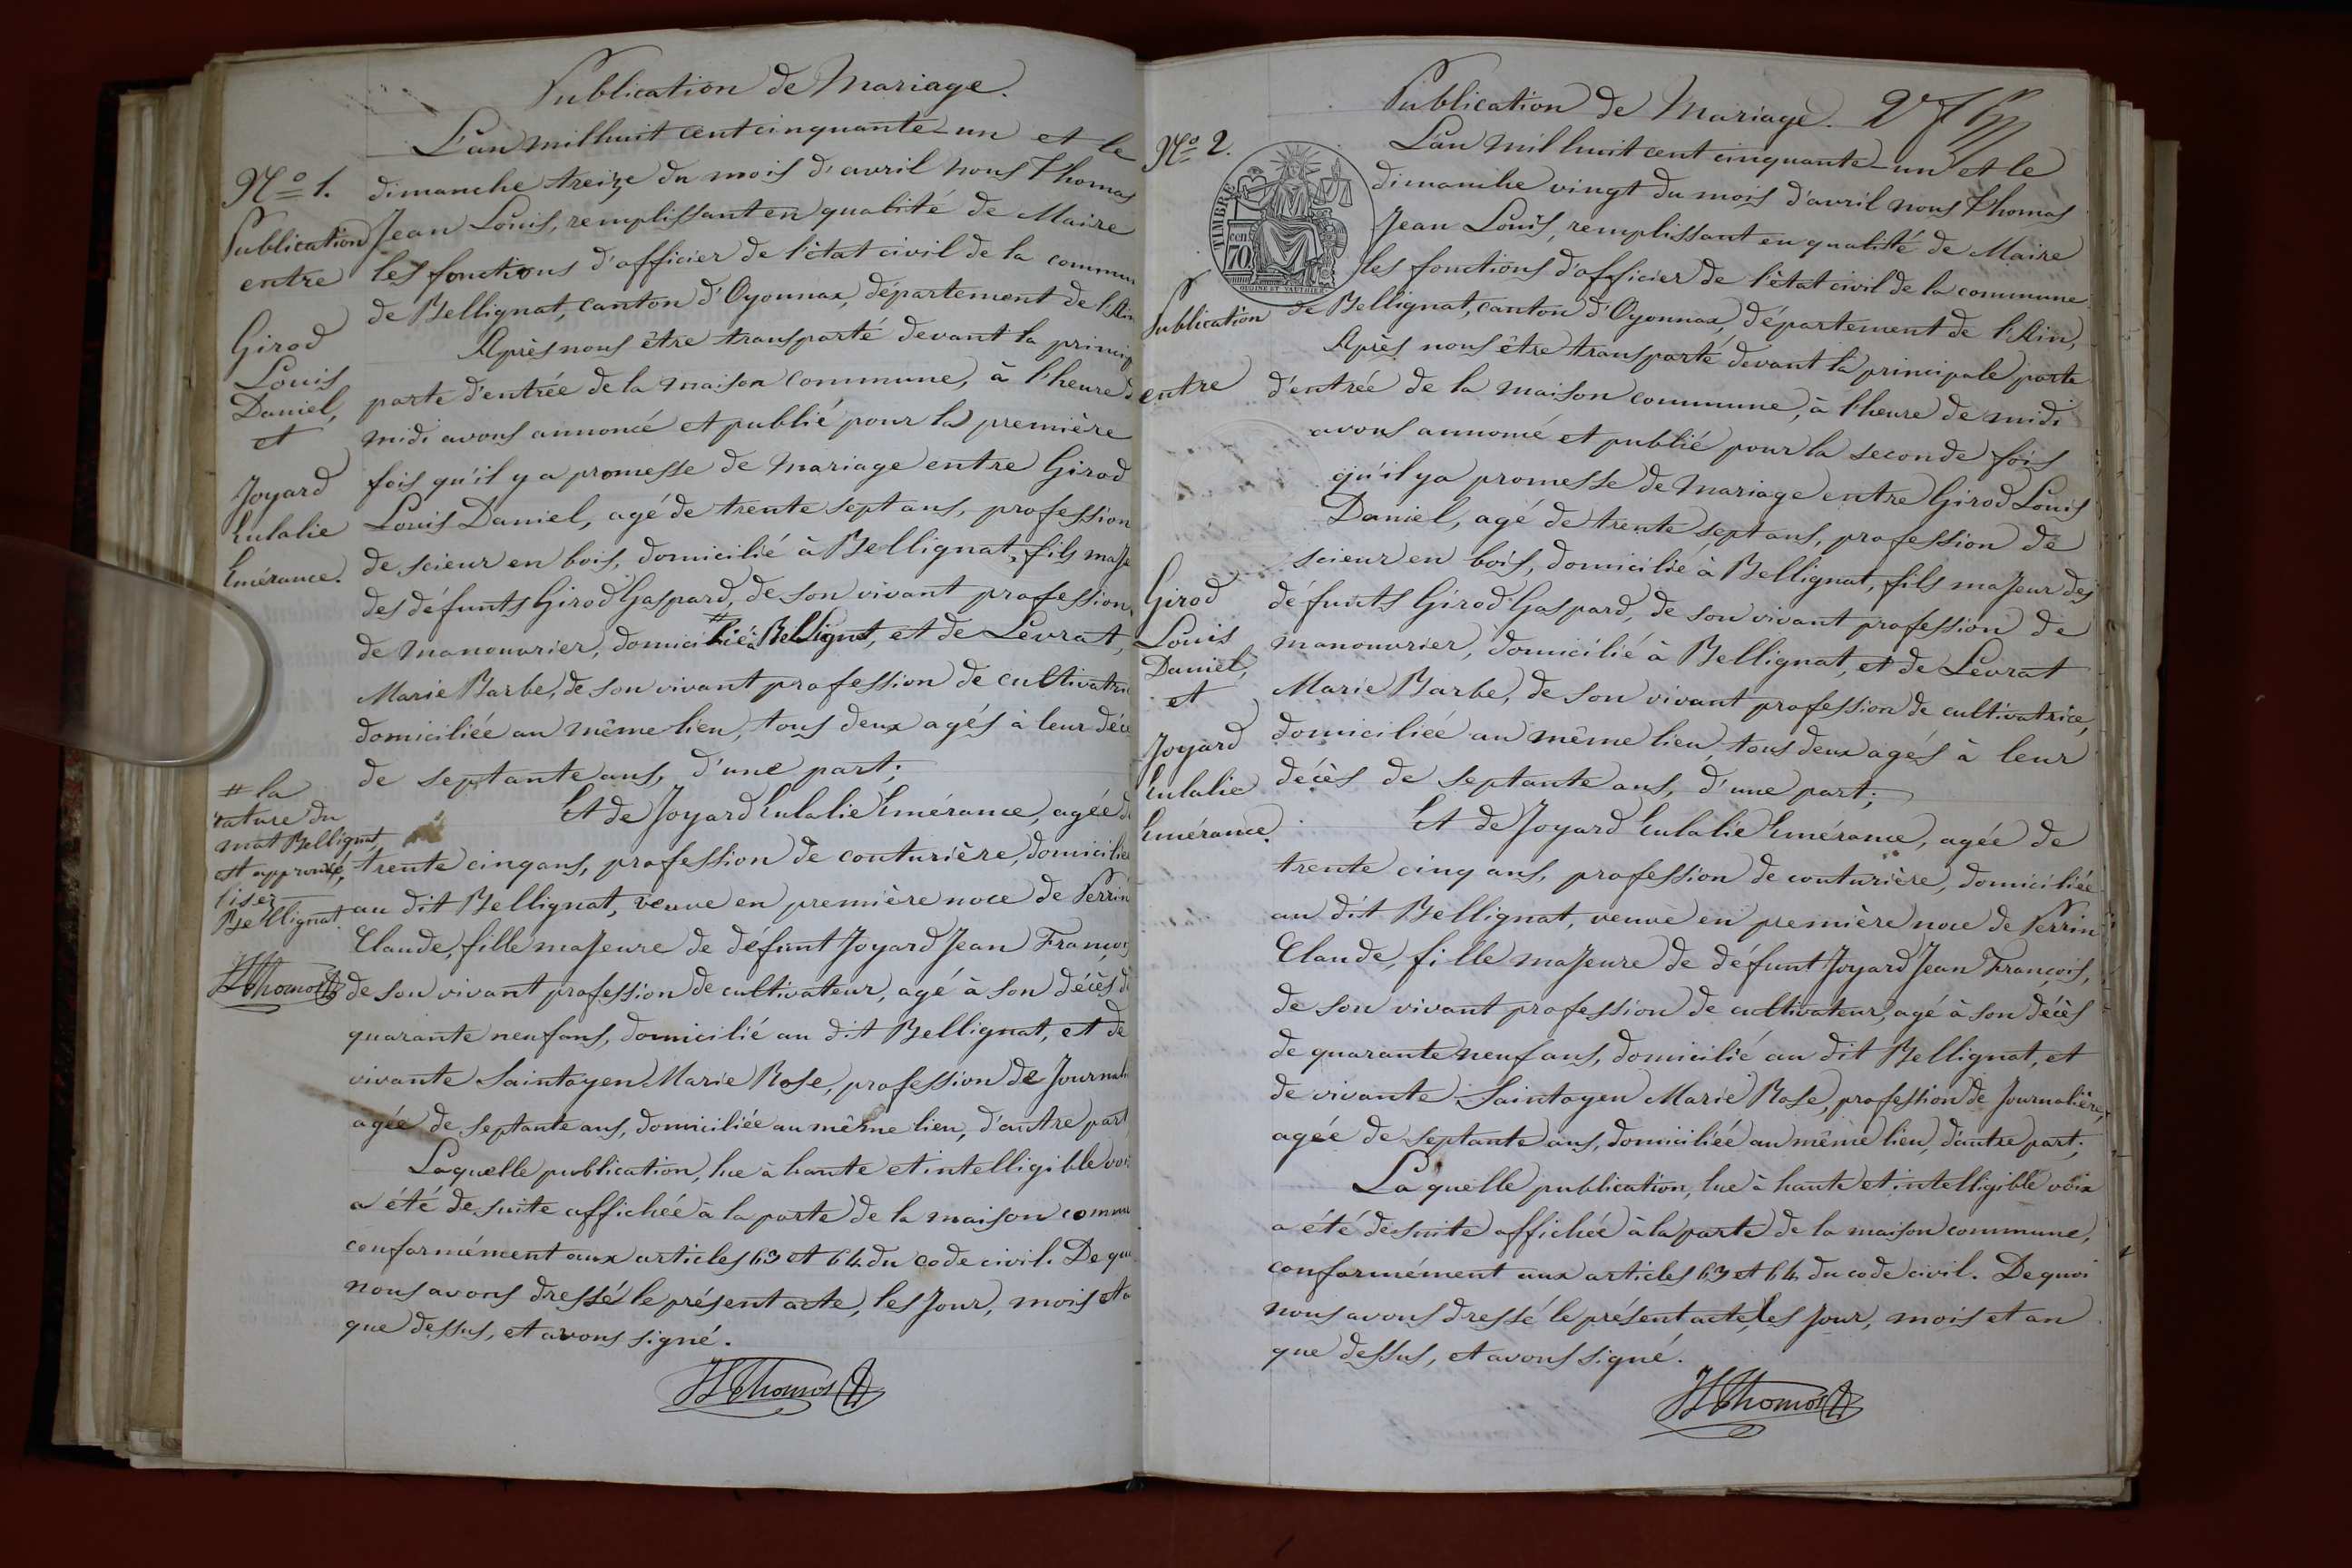 Publication de Mariage.
L'an mil huit cent cinquante-un et le
N.º 1.
dimanche treize du mois d'avril nous Thomas
Publication
Jean Louis, remplissant en qualité de Maire
entre
les fonctions d'officier de l'état civil de la commun
de Bellignat, canton d'Oyonnax, département de l'Ain
Girod
Louis
Daniel,
et
Joyard
Eulalie
Emérance.
Après nous être transporté devant la princip
porte d'entrée de la maison commune, à l'heure d
midi avons annoncé et publié pour la première
fois qu'il y a promesse de mariage entre Girod
Louis Daniel, agé de trente sept ans, profession
de scieur en bois, domicilié à Bellignat, fils maje
des défunts Girod Gaspard, de son vivant profession
de manouvrier, domicilié à # Bellignat, et de Levrat,
Marie Barbe, de son vivant profession de cultivatri
domiciliée au même lieu, tous deux agés à leur décè
de septante ans, d'une part;
# la
rature du
mot Bellignat
est approuvé,
lisez
Bellignat.
JLThomas
Et de Joyard Eulalie Emérance, agée d
trente cinq ans, profession de couturière, domicilié
au dit Bellignat, veuve en première noce de Perrin
Claude, fille majeure de défunt Joyard Jean Françoi
de son vivant profession de cultivateur, agé à son décès d
quarante neuf ans, domicilié au dit Bellignat, et de
vivante Saintoyen Marie Rose, profession de Journali
agée de septante ans, domiciliée au même lieu, d'autre part
Laquelle publication, lue à haute et intelligible voi
a été de suite affichée à la porte de la maison commu
conformément aux articles 63 et 64 du code civil. De qu
nous avons dressé le présent acte, les Jour, mois et a
que dessus, et avons signé.
JLThomas
Publication de Mariage.
N.º 2.
TIMBRE
70 cen
L'an mil huit cent cinquante-un et le
dimanche vingt du mois d'avril nous Thomas
Jean Louis, remplissant en qualité de Maire
les fonctions d'officier de l'état civil de la commune
Publication
de Bellignat, canton d'Oyonnax, département de l'Ain,
Après nous être transporté devant la principale porte
entre
d'entrée de la maison commune, à l'heure de midi
avons annoncé et publié pour la seconde fois
qu'il y a promesse de mariage entre Girod Louis
Daniel, agé de trente sept ans, profession de
scieur en bois, domicilié à Bellignat, fils majeur des
Girod
Louis
Daniel,
et
Joyard
Eulalie
Emérance.
défunts Girod Gaspard, de son vivant profession de
manouvrier, domicilié à Bellignat, et de Levrat
Marie Barbe, de son vivant profession de cultivatrice,
domiciliée au même lieu, tous deux agés à leur
décès de septante ans, d'une part;
Et de Joyard Eulalie Emérance, agée de
trente cinq ans, profession de couturière, domiciliée
au dit Bellignat, veuve en première noce de Perrin
Claude, fille majeure de défunt Joyard Jean François,
de son vivant profession de cultivateur, agé à son décès
de quarante neuf ans, domicilié au dit Bellignat, et
de vivante Saintoyen Marie Rose, profession de Journalière,
agée de septante ans, domiciliée au même lieu, d'autre part;
Laquelle publication, lue à haute et intelligible voix
a été de suite affichée à la porte de la maison commune,
conformément aux articles 63 et 64 du code civil. De quoi
nous avons dressé le présent acte, les Jour, mois et an
que dessus, et avons signé.
JLThomas